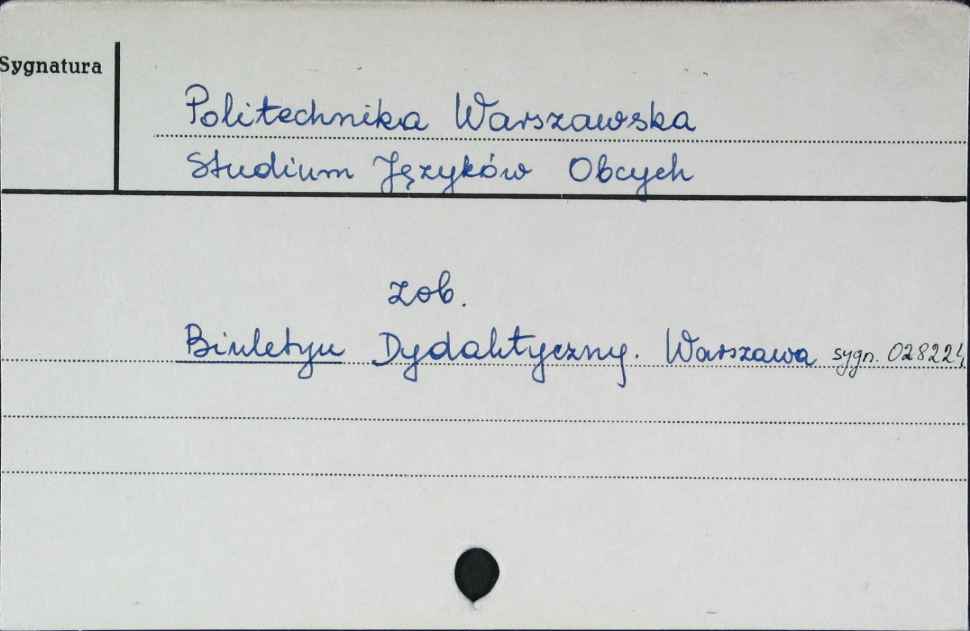 Sygnatura
Politechnika Warszawska
Studium Języków Obcych
zob.
Biuletyn Dydaktyczny. Warszawa sygn. 028224